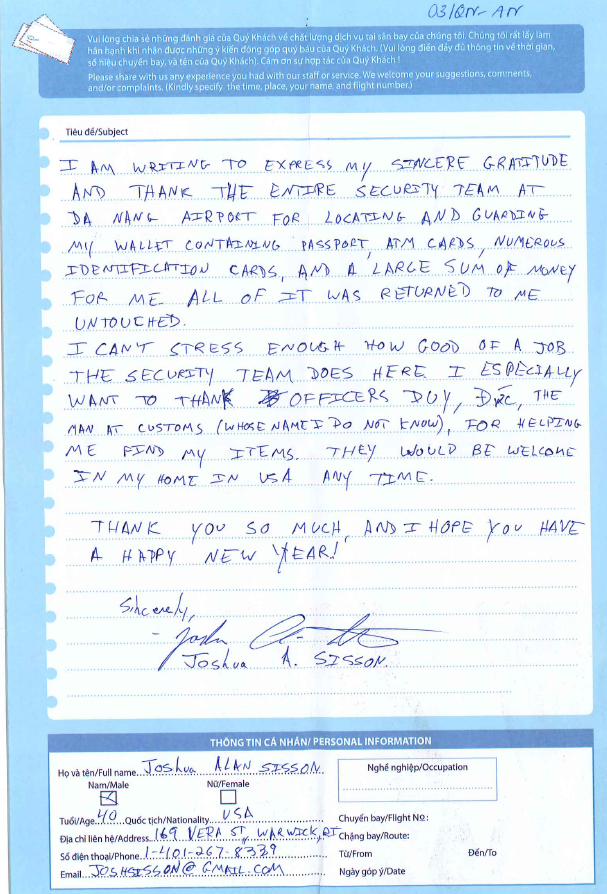 03/QN-AN
Vui lòng chia sẻ những đánh giá của Quý Khách về chất lượng dịch vụ tại sân bay của chúng tôi. Chúng tôi rất lấy làm
hân hạnh khi nhận được những ý kiến đóng góp quý báu của Quý Khách. (Vui lòng điền đầy đủ thông tin về thời gian,
số hiệu chuyến bay, và tên của Quý Khách). Cảm ơn sự hợp tác của Quý Khách !
Please share with us any experience you had with our staff or service. We welcome your suggestions, comments,
and/or complaints. (Kindly specify the time, place, your name, and flight number.)
Tiêu đề/Subject
I AM WRITING TO EXPRESS MY SINCERE GRATITUDE
AND THANK THE ENTIRE SECURITY TEAM AT
DA NANG AIRPORT FOR LOCATING AND GUARDING
MY WALLET CONTAINING PASSPORT, ATM CARDS, NUMEROUS
IDENTIFICATION CARDS, AND A LARGE SUM OF MONEY
FOR ME. ALL OF IT WAS RETURNED TO ME
UNTOUCHED.
I CAN'T STRESS ENOUGH HOW GOOD OF A JOB
THE SECURITY TEAM DOES HERE. I ESPECIALLY
WANT TO THANK OFFICERS DUY, THE
MAN AT CUSTOMS (WHOSE NAME I DO NOT KNOW), FOR HELPING
ME FIND MY ITEMS. THEY WOULD BE WELCOME
IN MY HOME IN USA ANY TIME.
THANK YOU SO MUCH, AND I HOPE YOU HAVE
A HAPPY NEW YEAR!
Sincerely,
JOSHUA A. SISSON
THÔNG TIN CÁ NHÂN/ PERSONAL INFORMATION
Họ và tên/Full name JOSHUA ALAN SISSON
Nam/Male Nữ/Female
Tuổi/Age 40 Quốc tịch/Nationality USA
Địa chỉ liên hệ/Address 169 VERA ST, WARWICK, RI
Số điện thoại/Phone 1-401-267-8339
Email JOSHSISSON@GMAIL.COM
Nghề nghiệp/Occupation
Chuyến bay/Flight Nº:
Chặng bay/Route:
Từ/From Đến/To
Ngày góp ý/Date